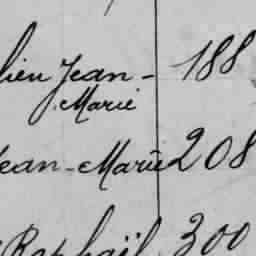 lieu Jean- 188
Marie
Jean-Marie 208
Raphaël 300